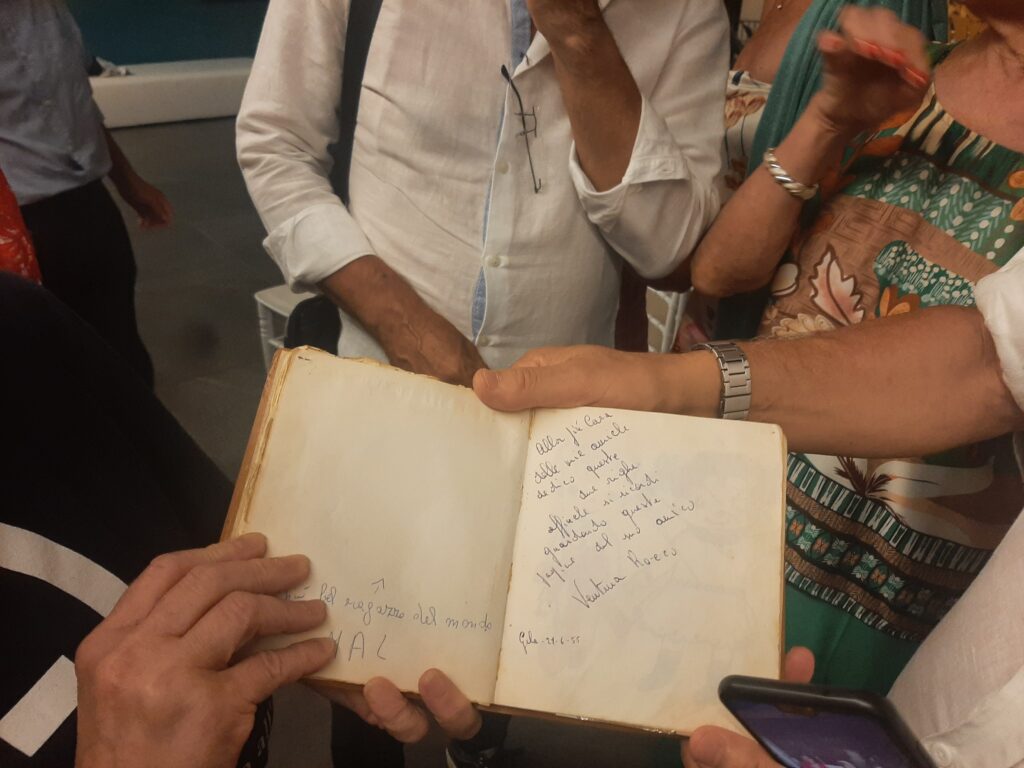 bel ragazzo del mondo
Alla più Cara
delle mie amiche
dedico queste
due righe
affinché si ricordi
guardando queste
del suo amico
Ventura Rocco
Gela-29-6-55